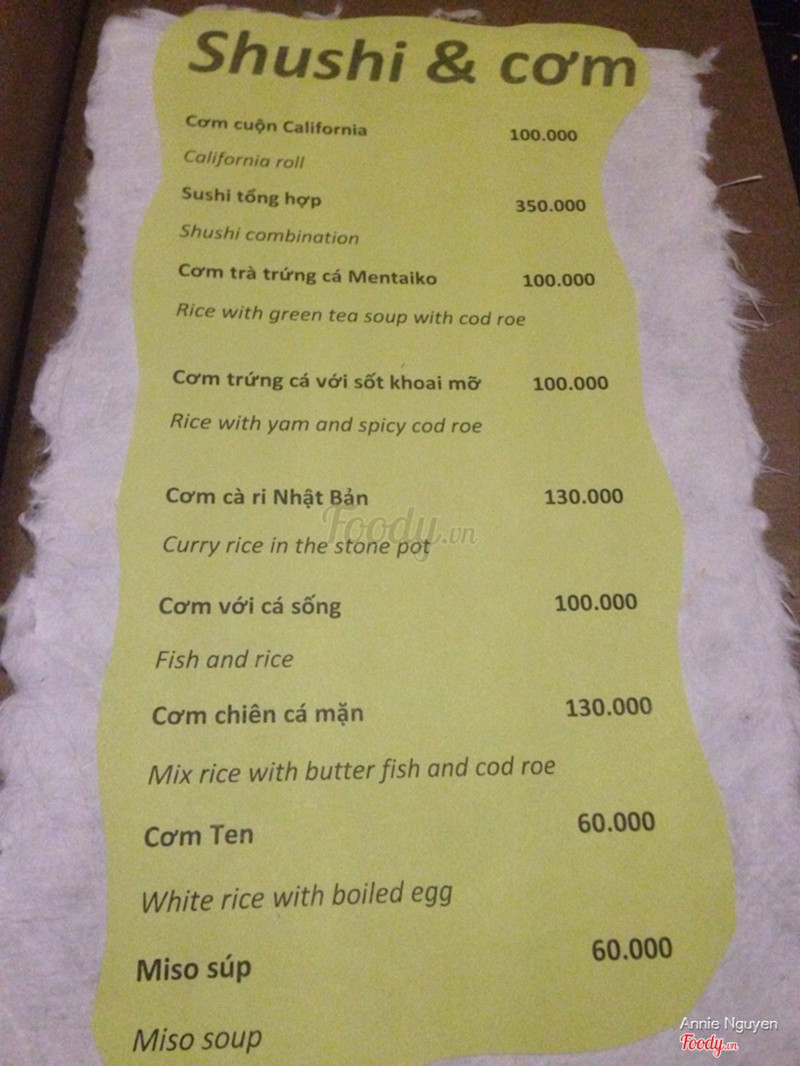 Shushi & cơm
Cơm cuộn California 100.000
California roll
Sushi tổng hợp 350.000
Shushi combination
Cơm trà trứng cá Mentaiko 100.000
Rice with green tea soup with cod roe
Cơm trứng cá với sốt khoai mỡ 100.000
Rice with yam and spicy cod roe
Cơm cà ri Nhật Bản 130.000
Foody.vn
Curry rice in the stone pot
Cơm với cá sống 100.000
Fish and rice
Cơm chiên cá mặn 130.000
Mix rice with butter fish and cod roe
Cơm Ten 60.000
White rice with boiled egg
Miso súp 60.000
Miso soup
Annie Nguyen
Foody.vn